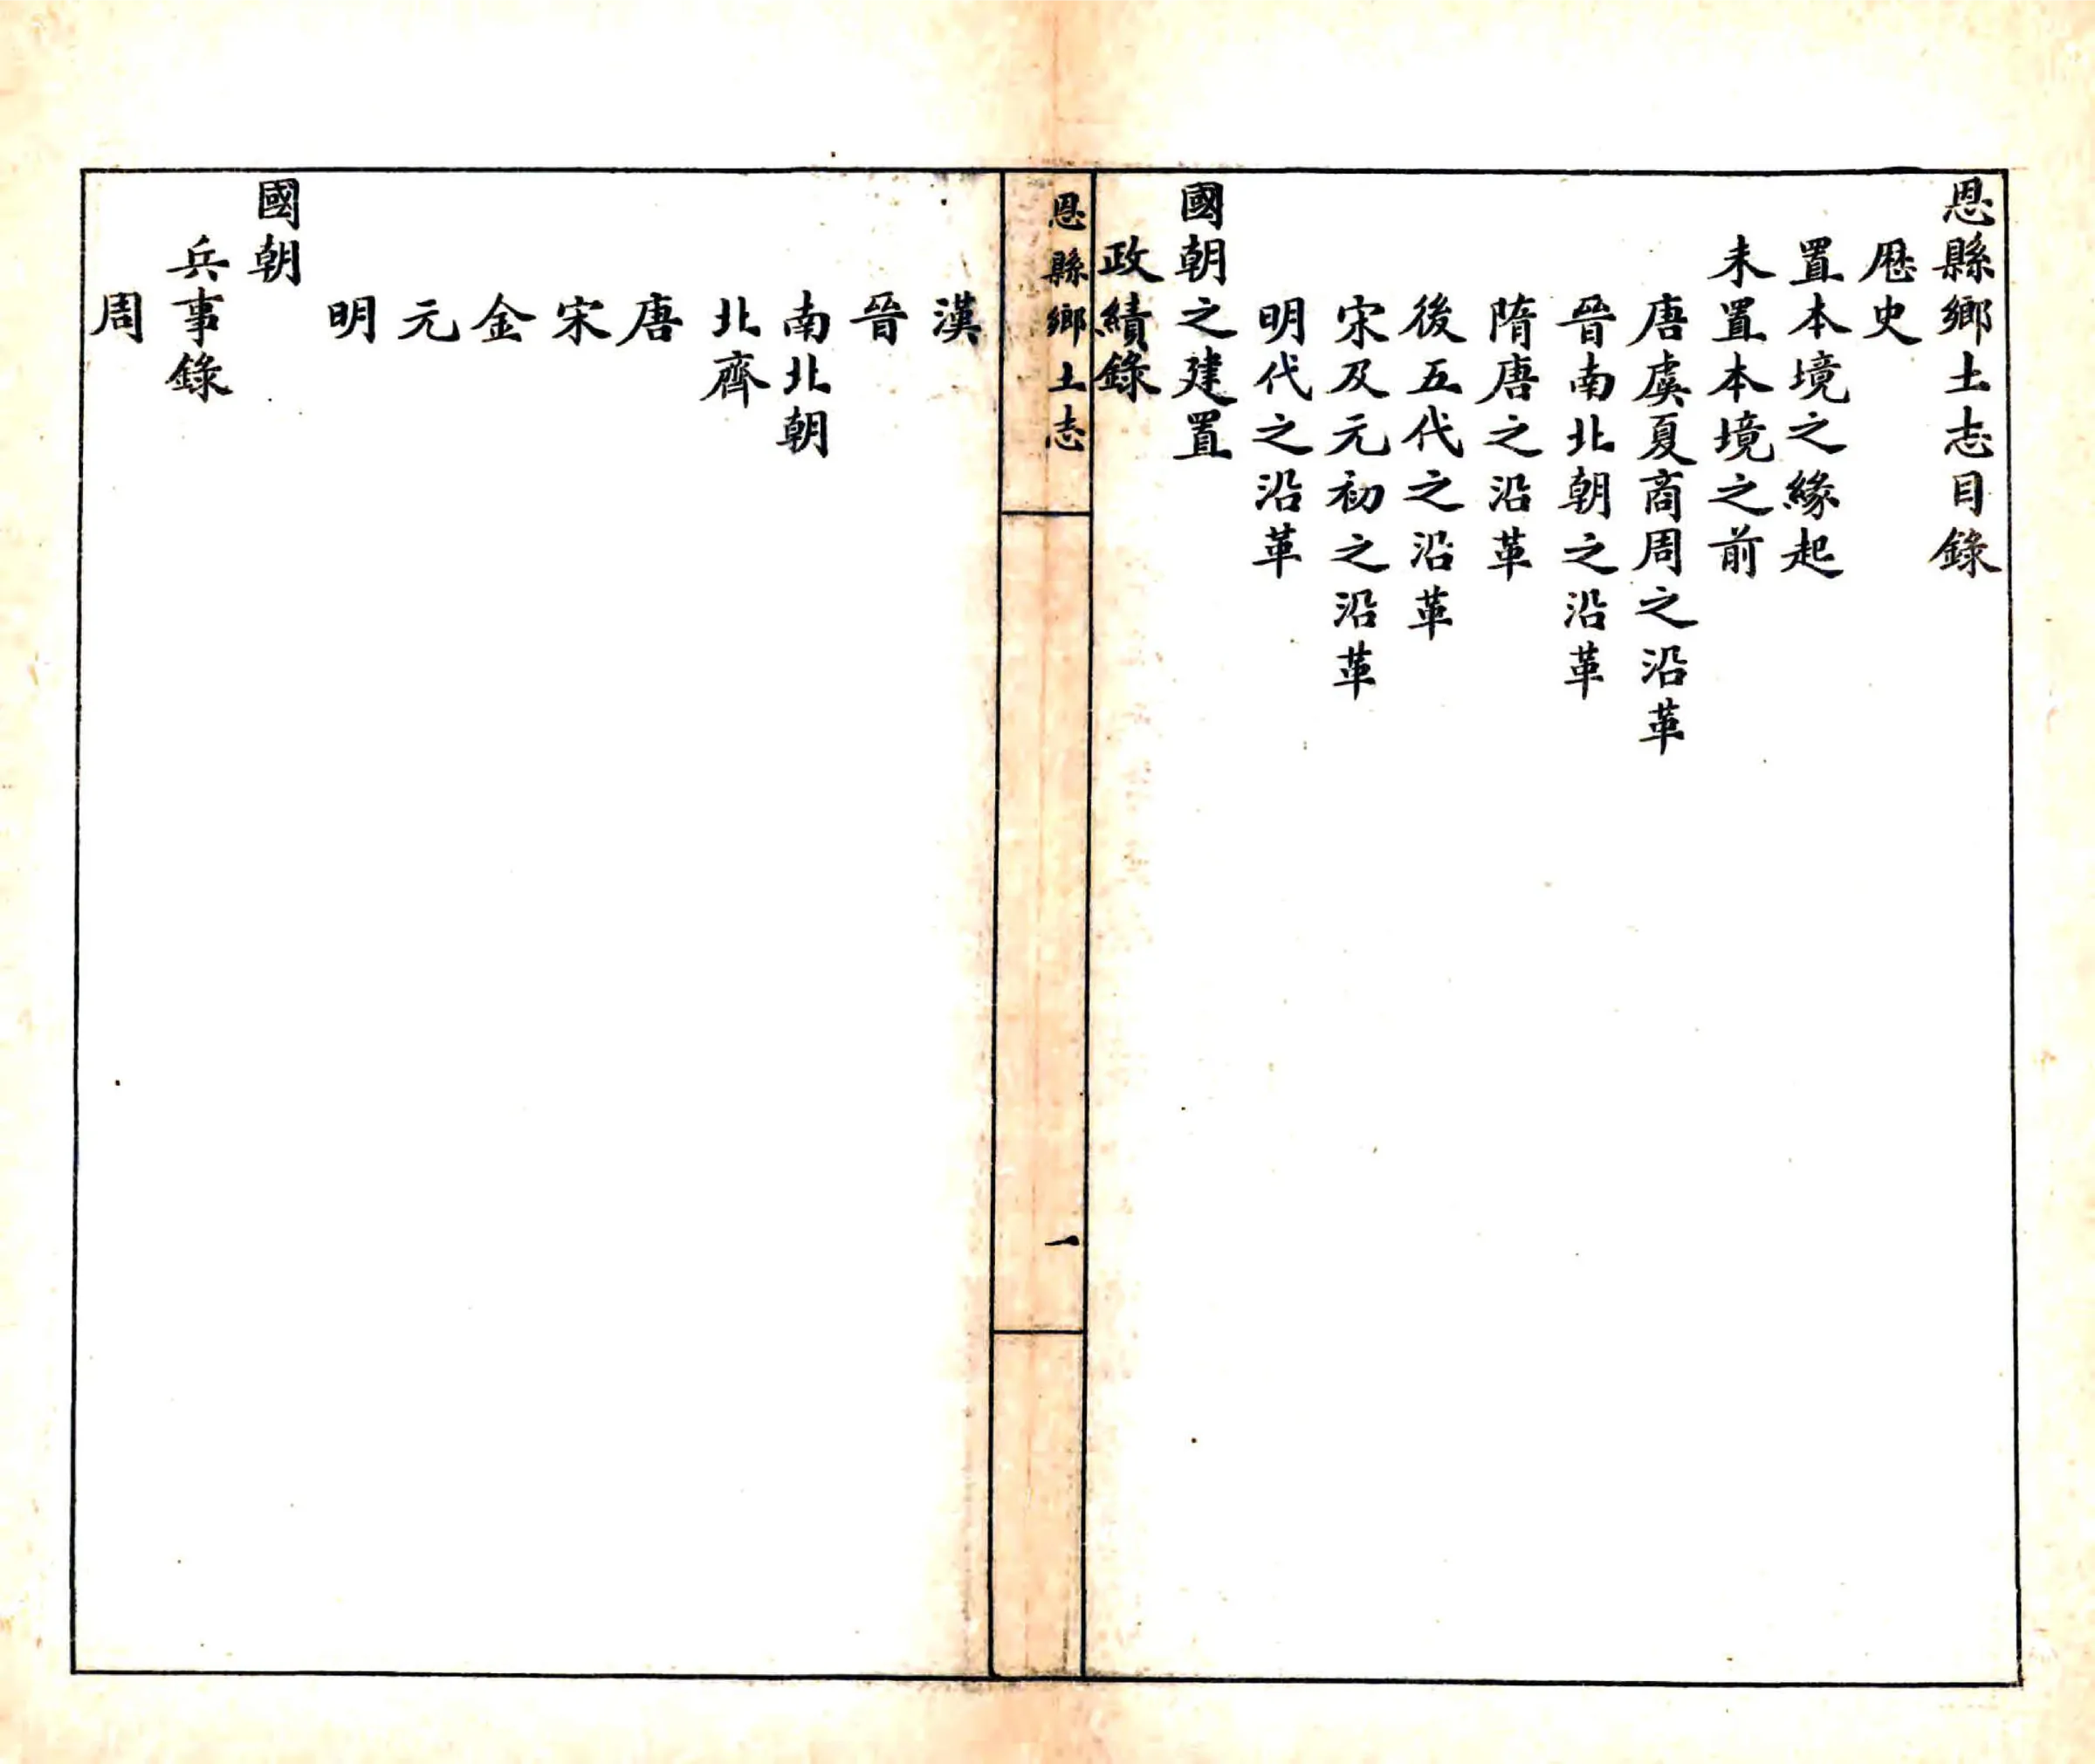 恩縣鄉土志目錄
歷史
置本境之緣起
未置本境之前
唐虞夏商周之沿革
晉南北朝之沿革
隋唐之沿革
後五代之沿革
宋及元初之沿革
明代之沿革
國朝之建置
政績錄
恩縣鄉土志
一
漢
晉
南北朝
北齊
唐
宋
金
元
明
國朝
兵事錄
周